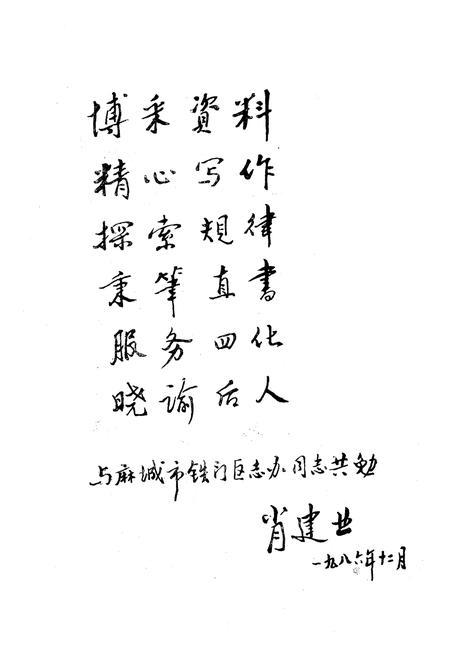 博采資料
精心写作
探索規律
秉筆直書
服务四化
晓谕后人
与麻城市铁门区志办同志共勉
肖建业
一九八六年十二月